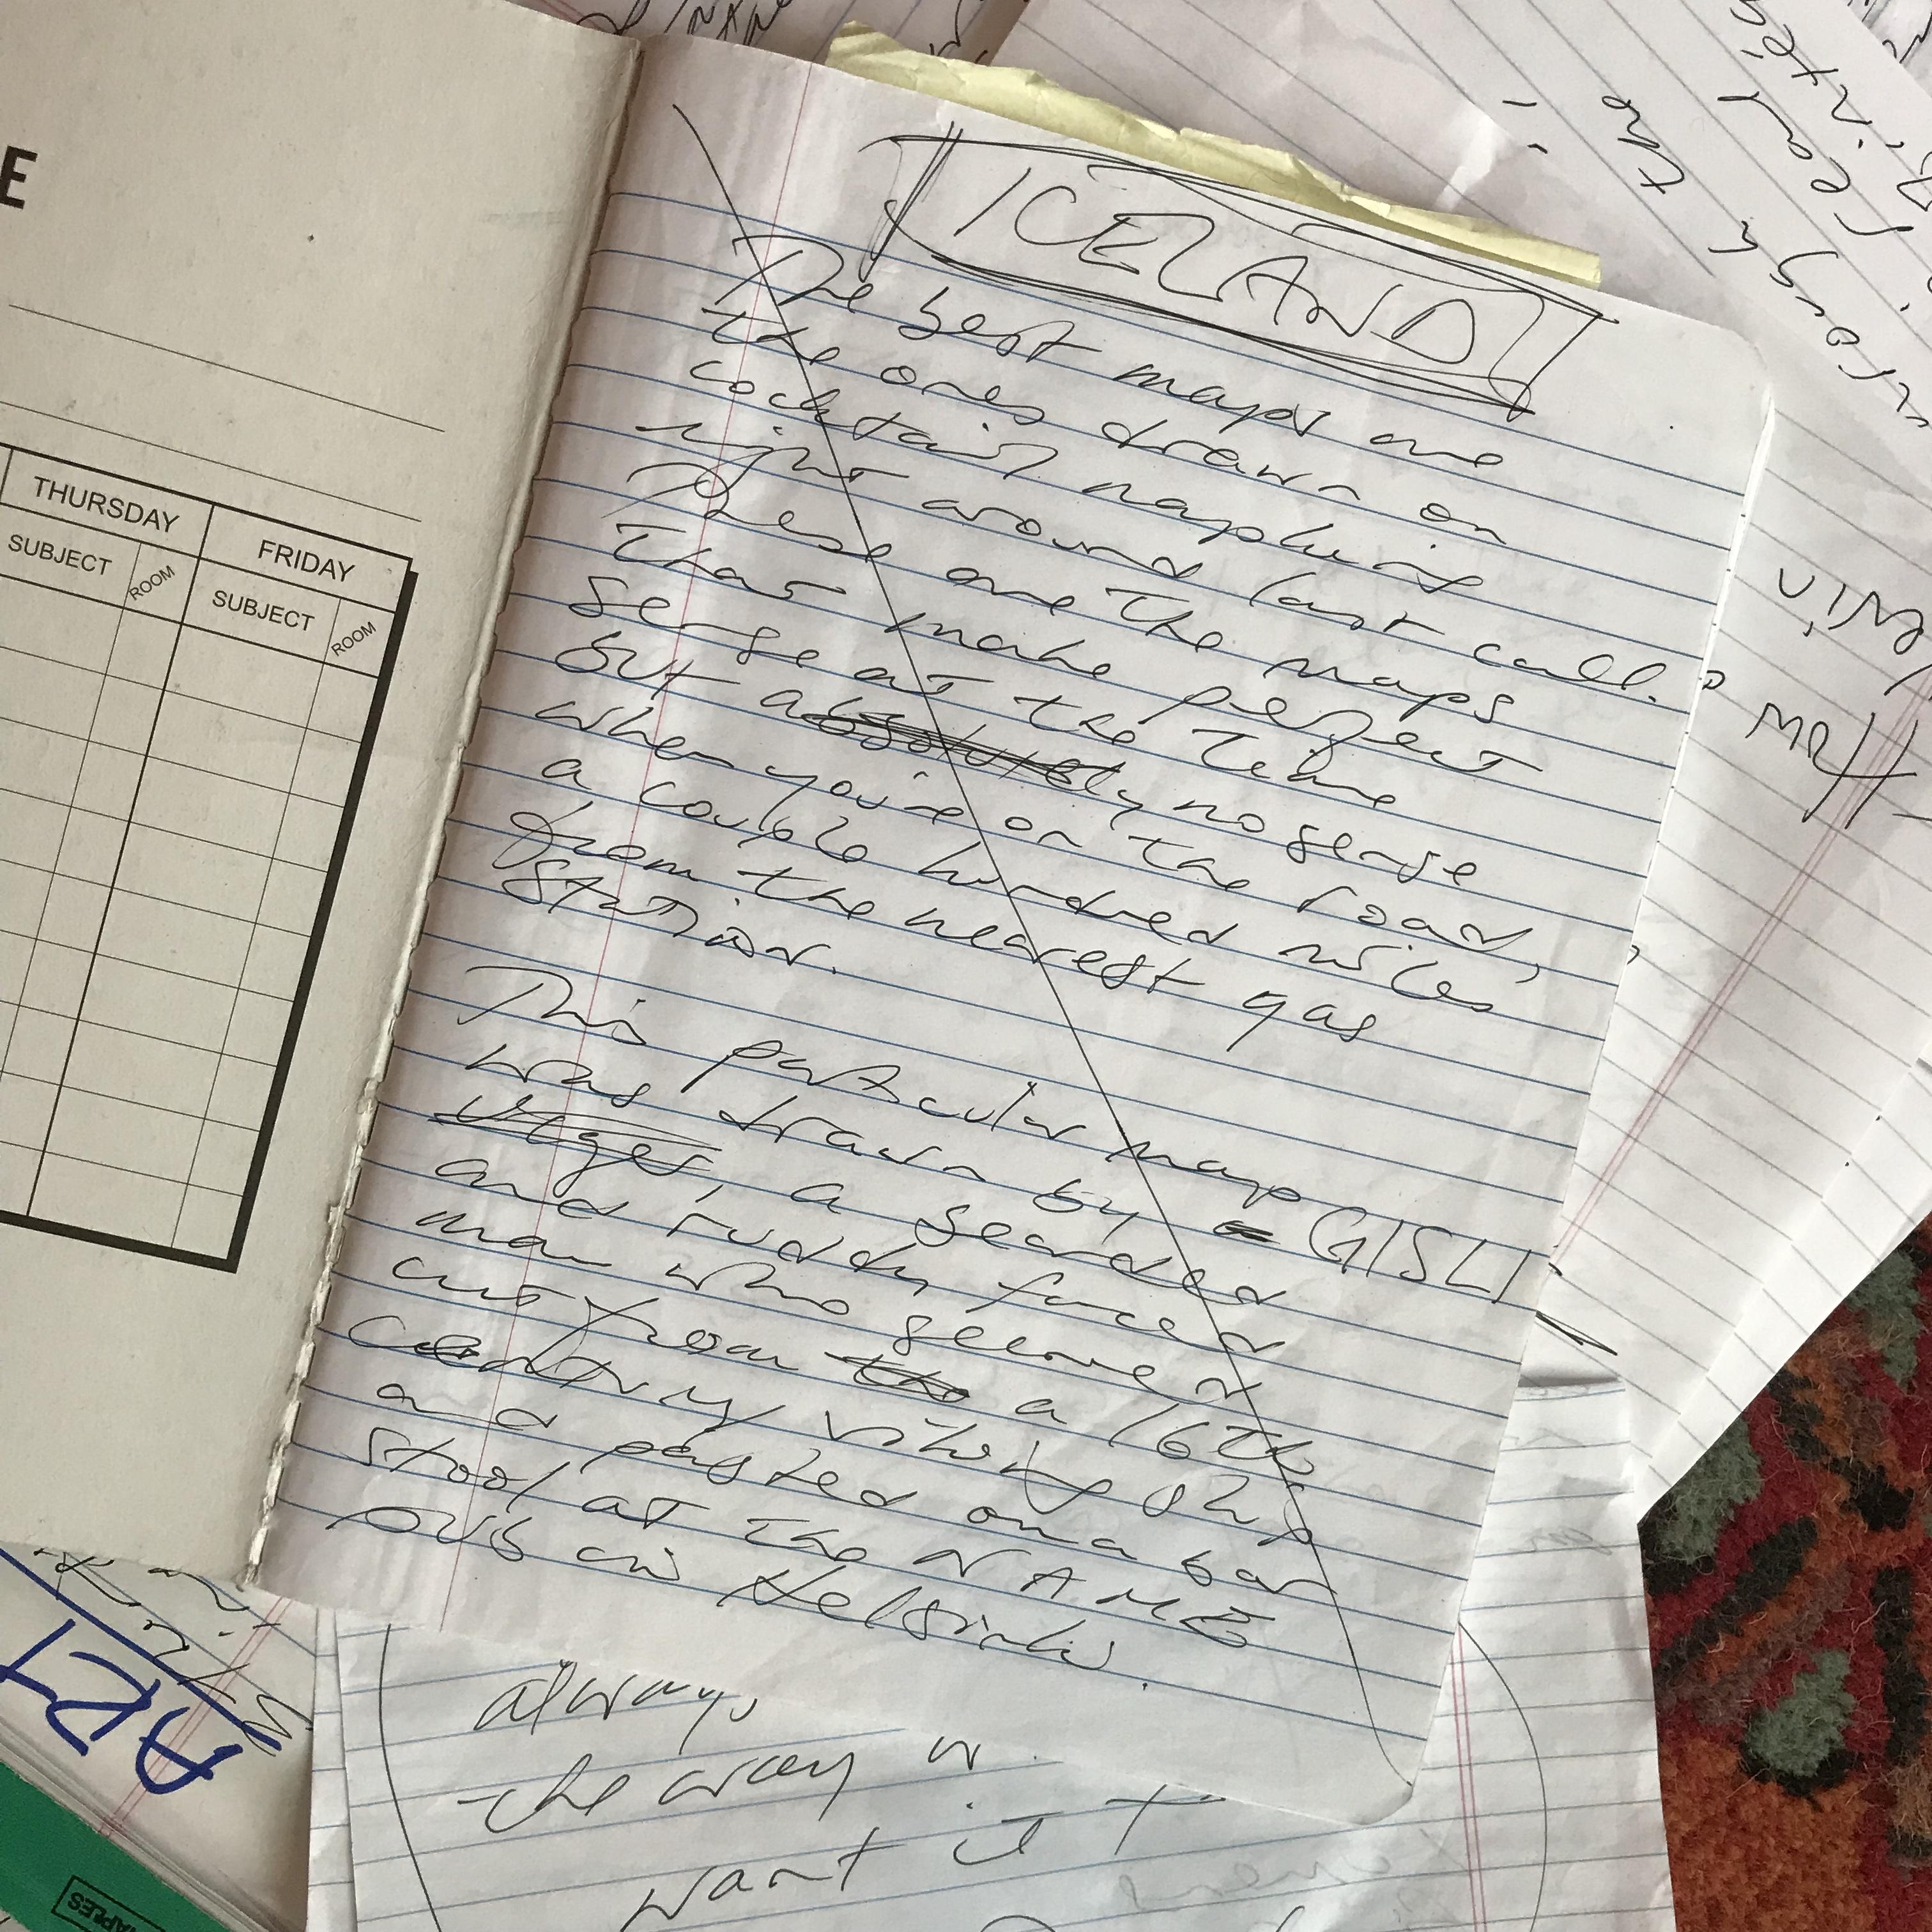 E
THURSDAY
FRIDAY
SUBJECT
ROOM
SUBJECT
ROOM
ICELAND
The best maps are
the ones drawn on
cocktail napkins
right around last call.
These are the maps
that make perfect
sense at the time
but absolutely no sense
when you're on the road,
a couple hundred miles
from the nearest gas
station.
This particular map
was drawn by GISLI
a bearded
and ruddy faced
man who seemed
cut from the a 16th
century viking ship
and pasted on a bar
stool at the NAME
pub in Helsinki.
always
the way
want it
the
How
ART